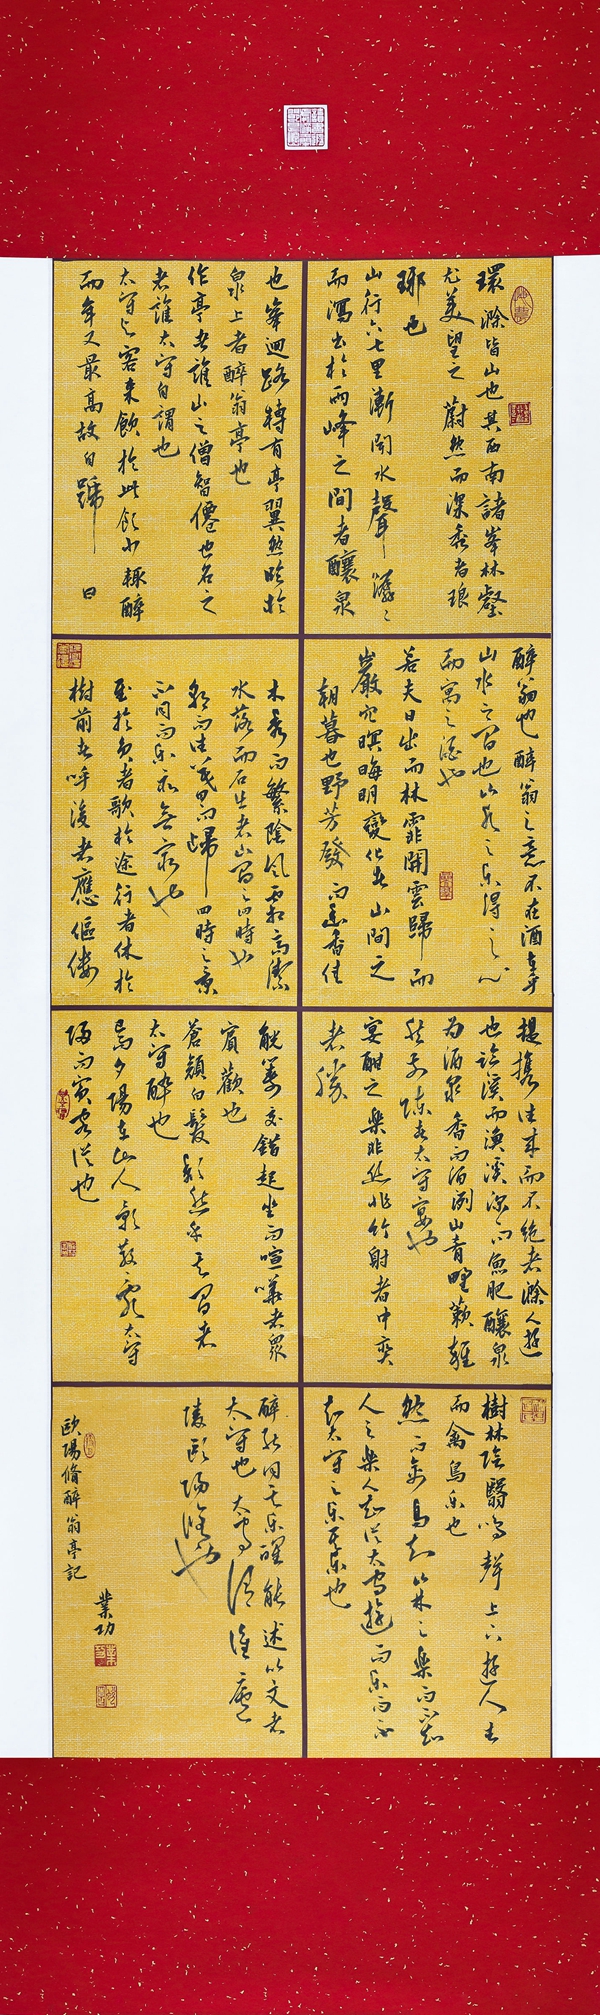 環滁皆山也其西南諸峯林壑
尤美望之蔚然而深秀者琅
琊也
山行六七里漸聞水聲潺〻
而瀉出於兩峰之間者釀泉
也峯迴路轉有亭翼然臨於
泉上者醉翁亭也
作亭者誰山之僧智僊也名之
者誰太守自謂也
太守與客來飲於此飲少輒醉
而年又最高故自號曰
醉翁也醉翁之意不在酒在乎
山水之間也山水之樂得之心
而寓之酒也
若夫日出而林霏開雲歸而
巖穴暝晦明變化者山間之
朝暮也野芳發而幽香佳
木秀而繁陰風霜高潔
水落而石出者山間之四時也
朝而往暮而歸四時之景
不同而樂亦無窮也
至於負者歌於途行者休於
樹前者呼後者應傴僂
提攜往來而不絕者滁人遊
也臨溪而漁溪深而魚肥釀泉
為酒泉香而酒洌山肴野蔌雜
然前陳者太守宴也
宴酣之樂非絲非竹射者中奕
者勝
觥籌交錯起坐而喧嘩者眾
賓歡也
蒼顏白髮頹然乎其間者
太守醉也
已而夕陽在山人影散亂太守
歸而賓客從也
樹林陰翳鳴聲上下遊人去
而禽鳥樂也
然而禽鳥知山林之樂而不知
人之樂人知從太守遊而樂而不
知太守之樂其樂也
醉能同其樂醒能述以文者
太守也太守謂誰廬
陵歐陽脩也
歐陽脩醉翁亭記
業功